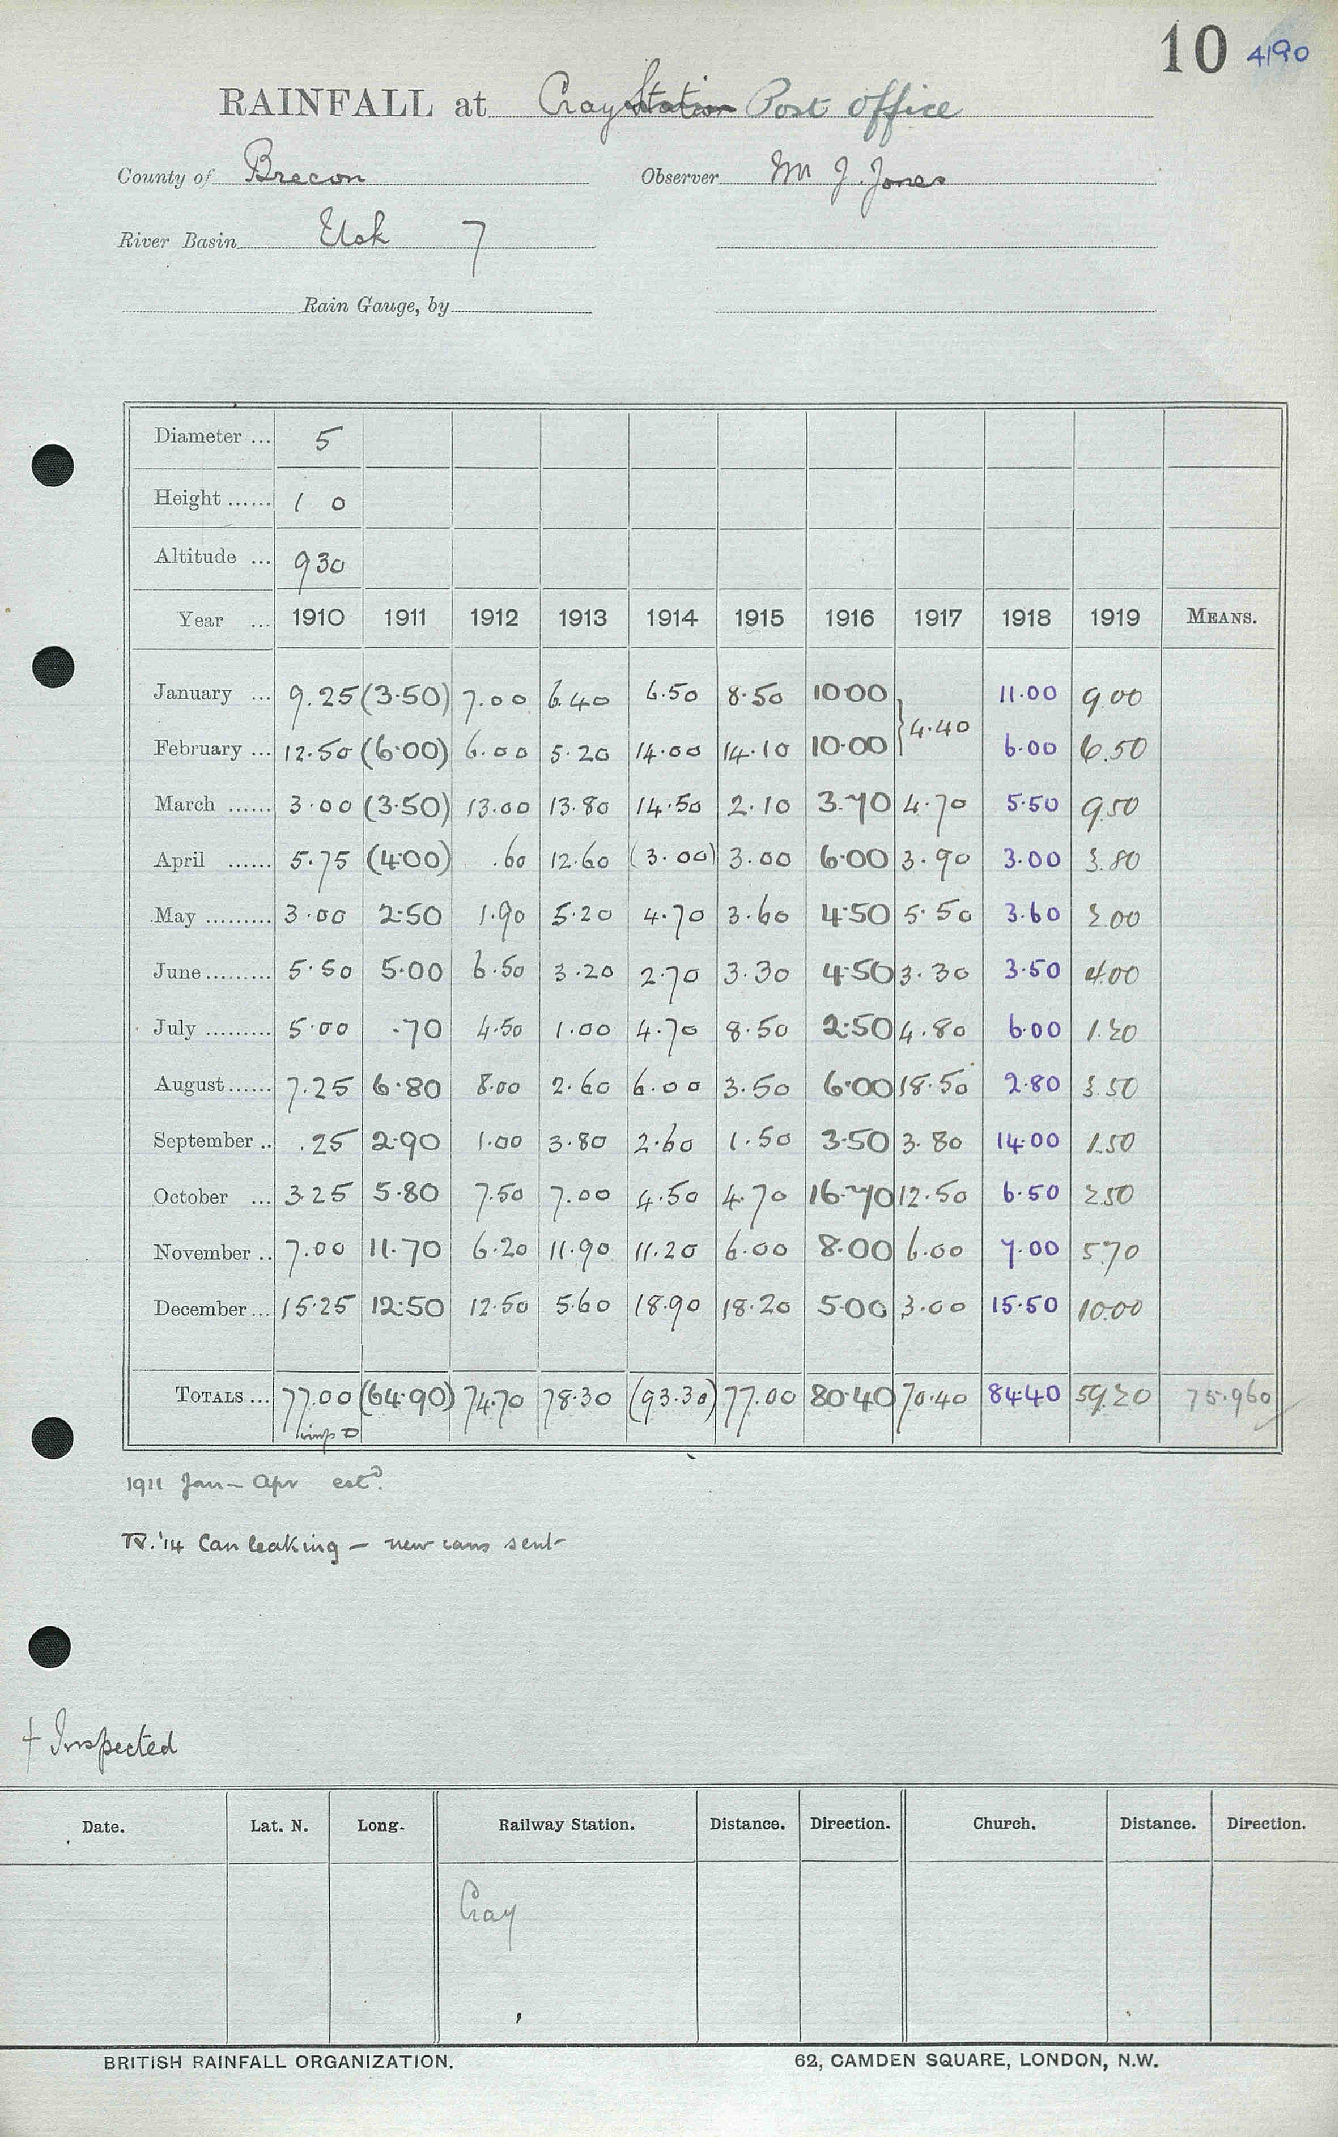 10 4190
RAINFALL at Cray Station Post office
County of Brecon Observer M J. Jones
River Basin Usk 7
Rain Gauge, by
Diameter ... 5
Height ...... 1 0
Altitude ... 930
Year ... 1910 1911 1912 1913 1914 1915 1916 1917 1918 1919 MEANS.
January ... 9.25 (3.50) 7.00 6.40 6.50 8.50 10.00 } 4.40 11.00 9.00
February ... 12.50 (6.00) 6.00 5.20 14.00 14.10 10.00 6.00 6.50
March ...... 3.00 (3.50) 13.00 13.80 14.50 2.10 3.70 4.70 5.50 9.50
April ...... 5.75 (4.00) .60 12.60 (3.00) 3.00 6.00 3.90 3.00 3.80
May ......... 3.00 2.50 1.90 5.20 4.70 3.60 4.50 5.50 3.60 2.00
June ......... 5.50 5.00 6.50 3.20 2.70 3.30 4.50 3.30 3.50 4.00
July ......... 5.00 .70 4.50 1.00 4.70 8.50 2.50 4.80 6.00 1.20
August ...... 7.25 6.80 8.00 2.60 6.00 3.50 6.00 18.50 2.80 3.50
September .. .25 2.90 1.00 3.80 2.60 1.50 3.50 3.80 14.00 1.50
October ... 3.25 5.80 7.50 7.00 4.50 4.70 16.70 12.50 6.50 2.50
November .. 7.00 11.70 6.20 11.90 11.20 6.00 8.00 6.00 7.00 5.70
December ... 15.25 12.50 12.50 5.60 18.90 18.20 5.00 3.00 15.50 10.00
TOTALS ... 77.00 (64.90) 74.70 78.30 (93.30) 77.00 80.40 70.40 84.40 59.20 75.960
1911 Jan - Apr estd.
IV. '14 Can leaking - new cans sent
† Inspected
Date. Lat. N. Long. Railway Station. Distance. Direction. Church. Distance. Direction.
Cray
BRITISH RAINFALL ORGANIZATION. 62, CAMDEN SQUARE, LONDON, N.W.